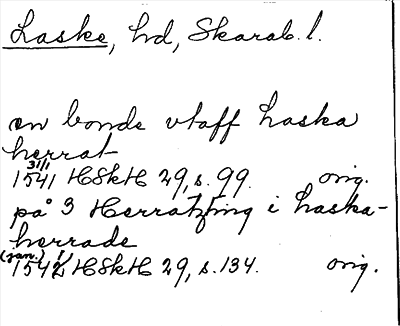 Laske, hd, Skarab. l.
en bonde vtaff Laska
herrat
31/1
1541 HSkH 29, s. 99. orig.
på 3 Herratzting i Laska-
herrade
(jan.) 1/
1542 HSkH 29, s. 134. orig.